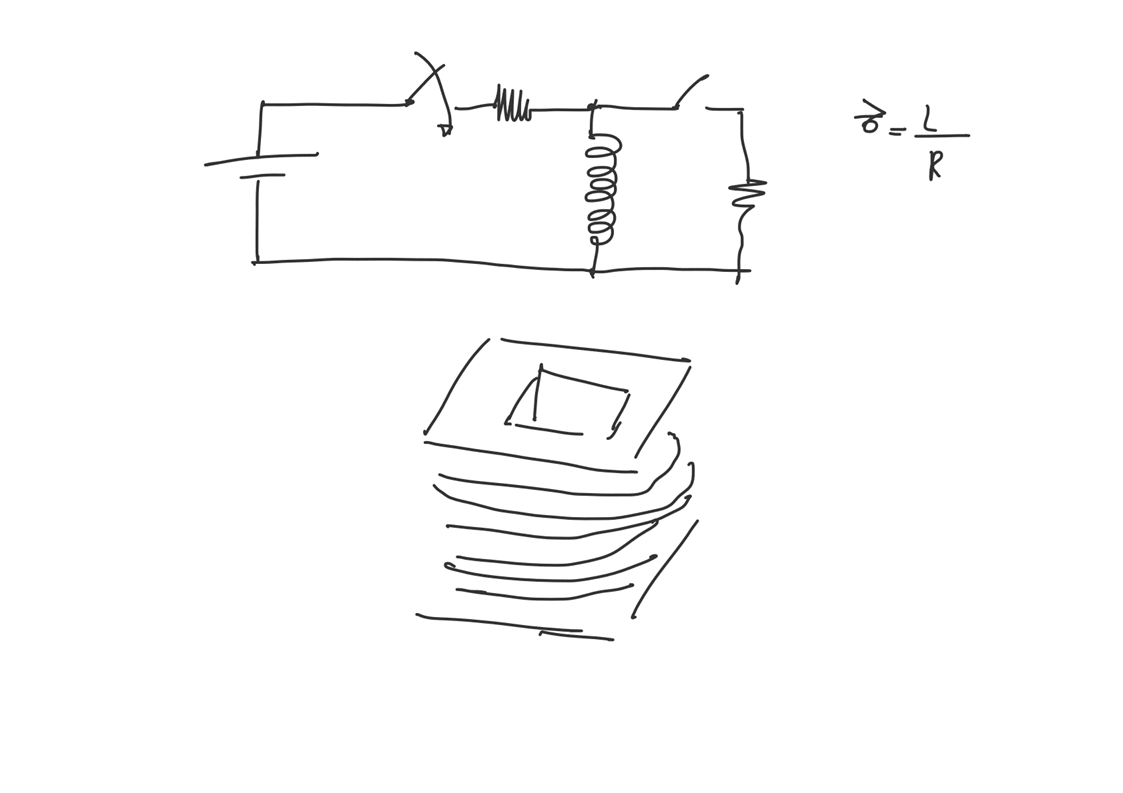 = L
R